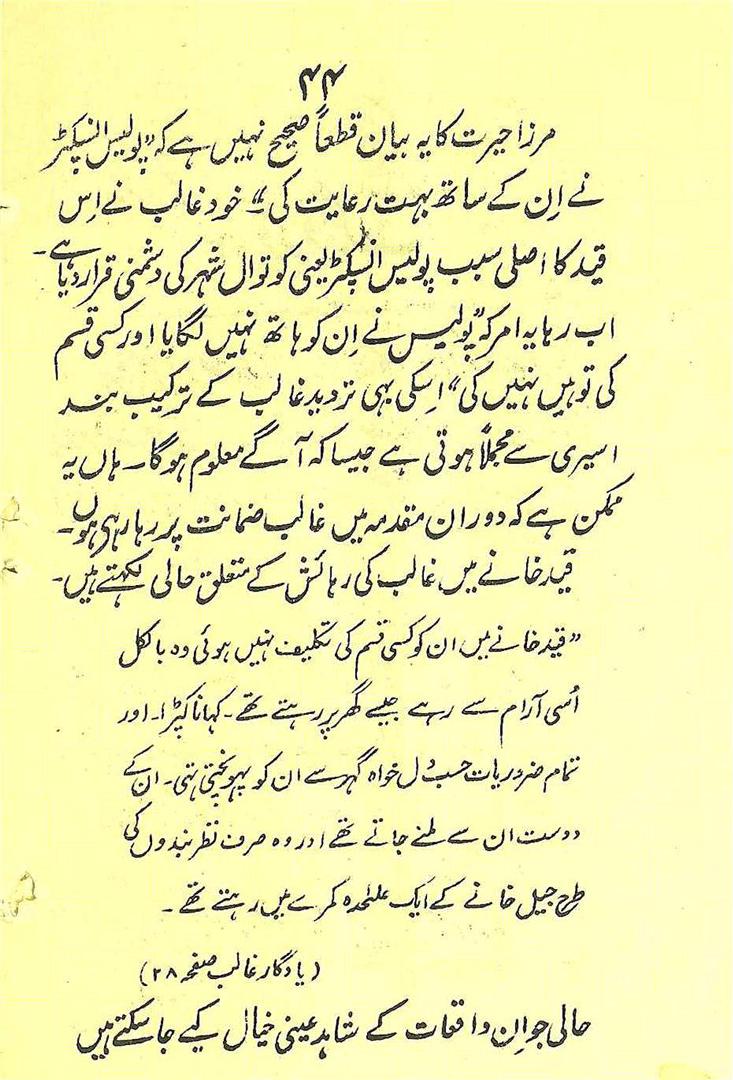 ۴۴
مرزا حیرت کا یہ بیان قطعاً صحیح نہیں ہے کہ "پولیس انسپکٹر
نے اِن کے ساتھ بہت رعایت کی"۔ خود غالب نے اِس
قید کا اصلی سبب پولیس انسپکٹر یعنی کوتوال شہر کی دشمنی قرار دیا ہے۔
اب رہا یہ امر کہ "پولیس نے اِن کو ہاتھ نہیں لگایا اور کسی قسم
کی توہیں نہیں کی" اِسکی بہی تردید غالب کے ترکیب بند
اسیری سے مجملاً ہوتی ہے جیسا کہ آگے معلوم ہوگا۔ ہاں یہ
ممکن ہے کہ دوران مقدمہ میں غالب ضمانت پر رہا رہی ہوں۔
قید خانے میں غالب کی رہائش کے متعلق حالی لکہتے ہیں۔
"قید خانے میں ان کو کسی قسم کی تکلیف نہیں ہوئی وہ بالکل
اُسی آرام سے رہے جیسے گھر پر رہتے تھے۔ کہانا کپڑا۔ اور
تمام ضروریات حسب دل خواہ گہر سے ان کو پہونچتی تہی۔ ان کے
دوست ان سے ملنے جاتے تھے اور وہ صرف نظر بندوں کی
طرح جیل خانے کے ایک علٰحدہ کمرے میں رہتے تھے۔
(یادگار غالب صفحہ ۲۸)
حالی جو اِن واقعات کے شاہد عینی خیال کیے جا سکتے ہیں